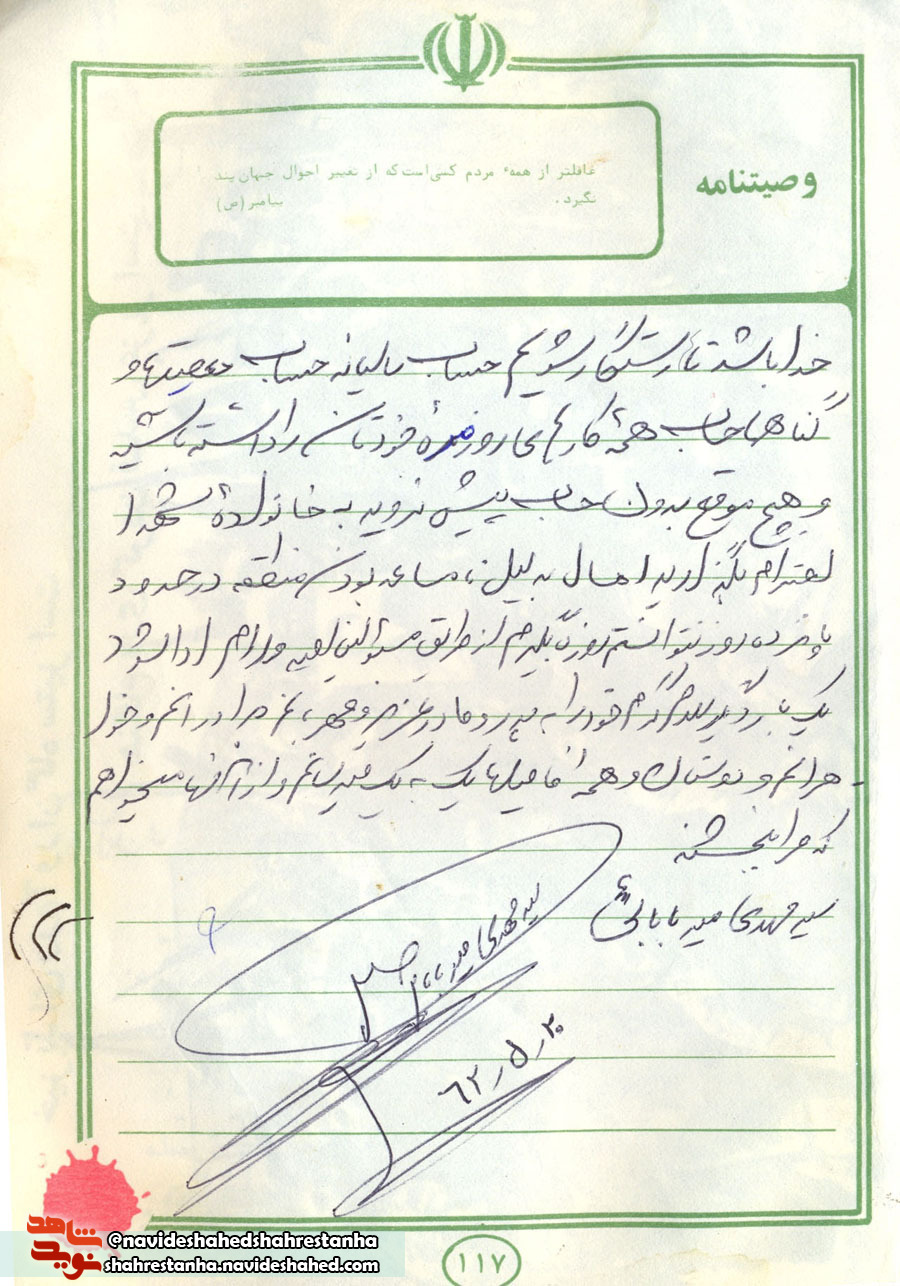 وصیتنامه
غافلتر از همهء مردم کسی است که از تغییر احوال جهان پند
نگیرد. پیامبر (ص)
خدا باشد تا رستگار شویم حساب سالیانه حساب معصیتها و
گناهها حساب همهٔ کارهای روزمرهٔ خودتان را داشته باشید
و هیچ موقع بدون حساب پیش نروید به خانوادهٔ شهدا
احترام بگذارید امسال به دلیل نامساعد بودن منطقه در حدود
پانزده روز نتوانستم روزه بگیرم از طریق مسئولین امر وام ادا شود
یک بار دیگر سلام گرم خود را به پدر و مادر عزیز و مهربانم برادرانم و خوا
هرانم و دوستان و همه فامیلها یک به یک میرسانم و از آنها میخواهم
که مرا ببخشند
سید مهدی میربابائی
سید مهدی میربابائی
۶۲٫۵٫۲۰
۱۱۷
شاهد
نوید
@navideshahedshahrestanha
shahrestanha.navideshahed.com